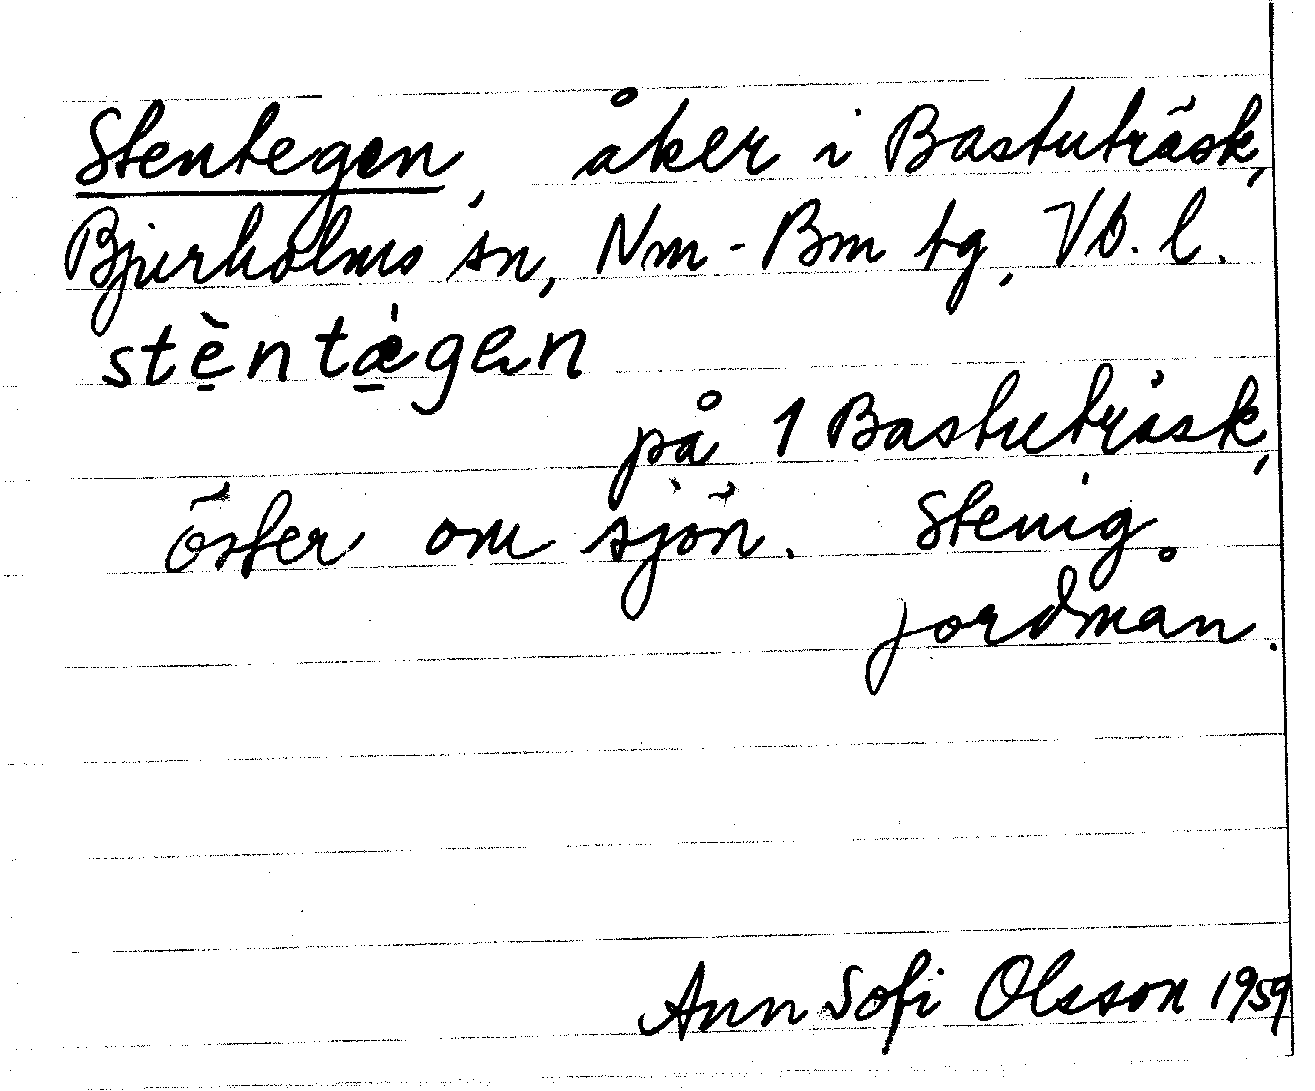 Stentegen, åker i Bastuträsk,
Bjurholms sn, Nm-Bm tg, Vb. l.
stèntǽgen
på 1 Bastuträsk,
öster om sjön. Stenig
jordmån.
Ann Sofi Olsson 1959